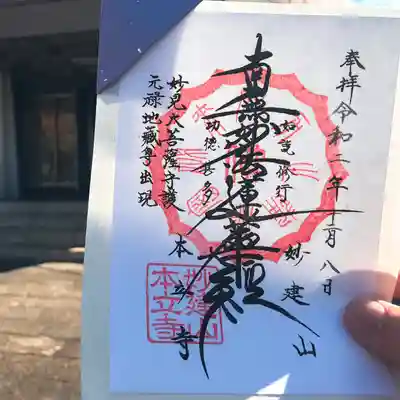 奉拝 令和二年十二月八日
妙建山
如説修行
南無妙法蓮華経
功徳甚多
本立寺
妙見大菩薩守護
元禄地蔵尊出現
妙建山
本立寺